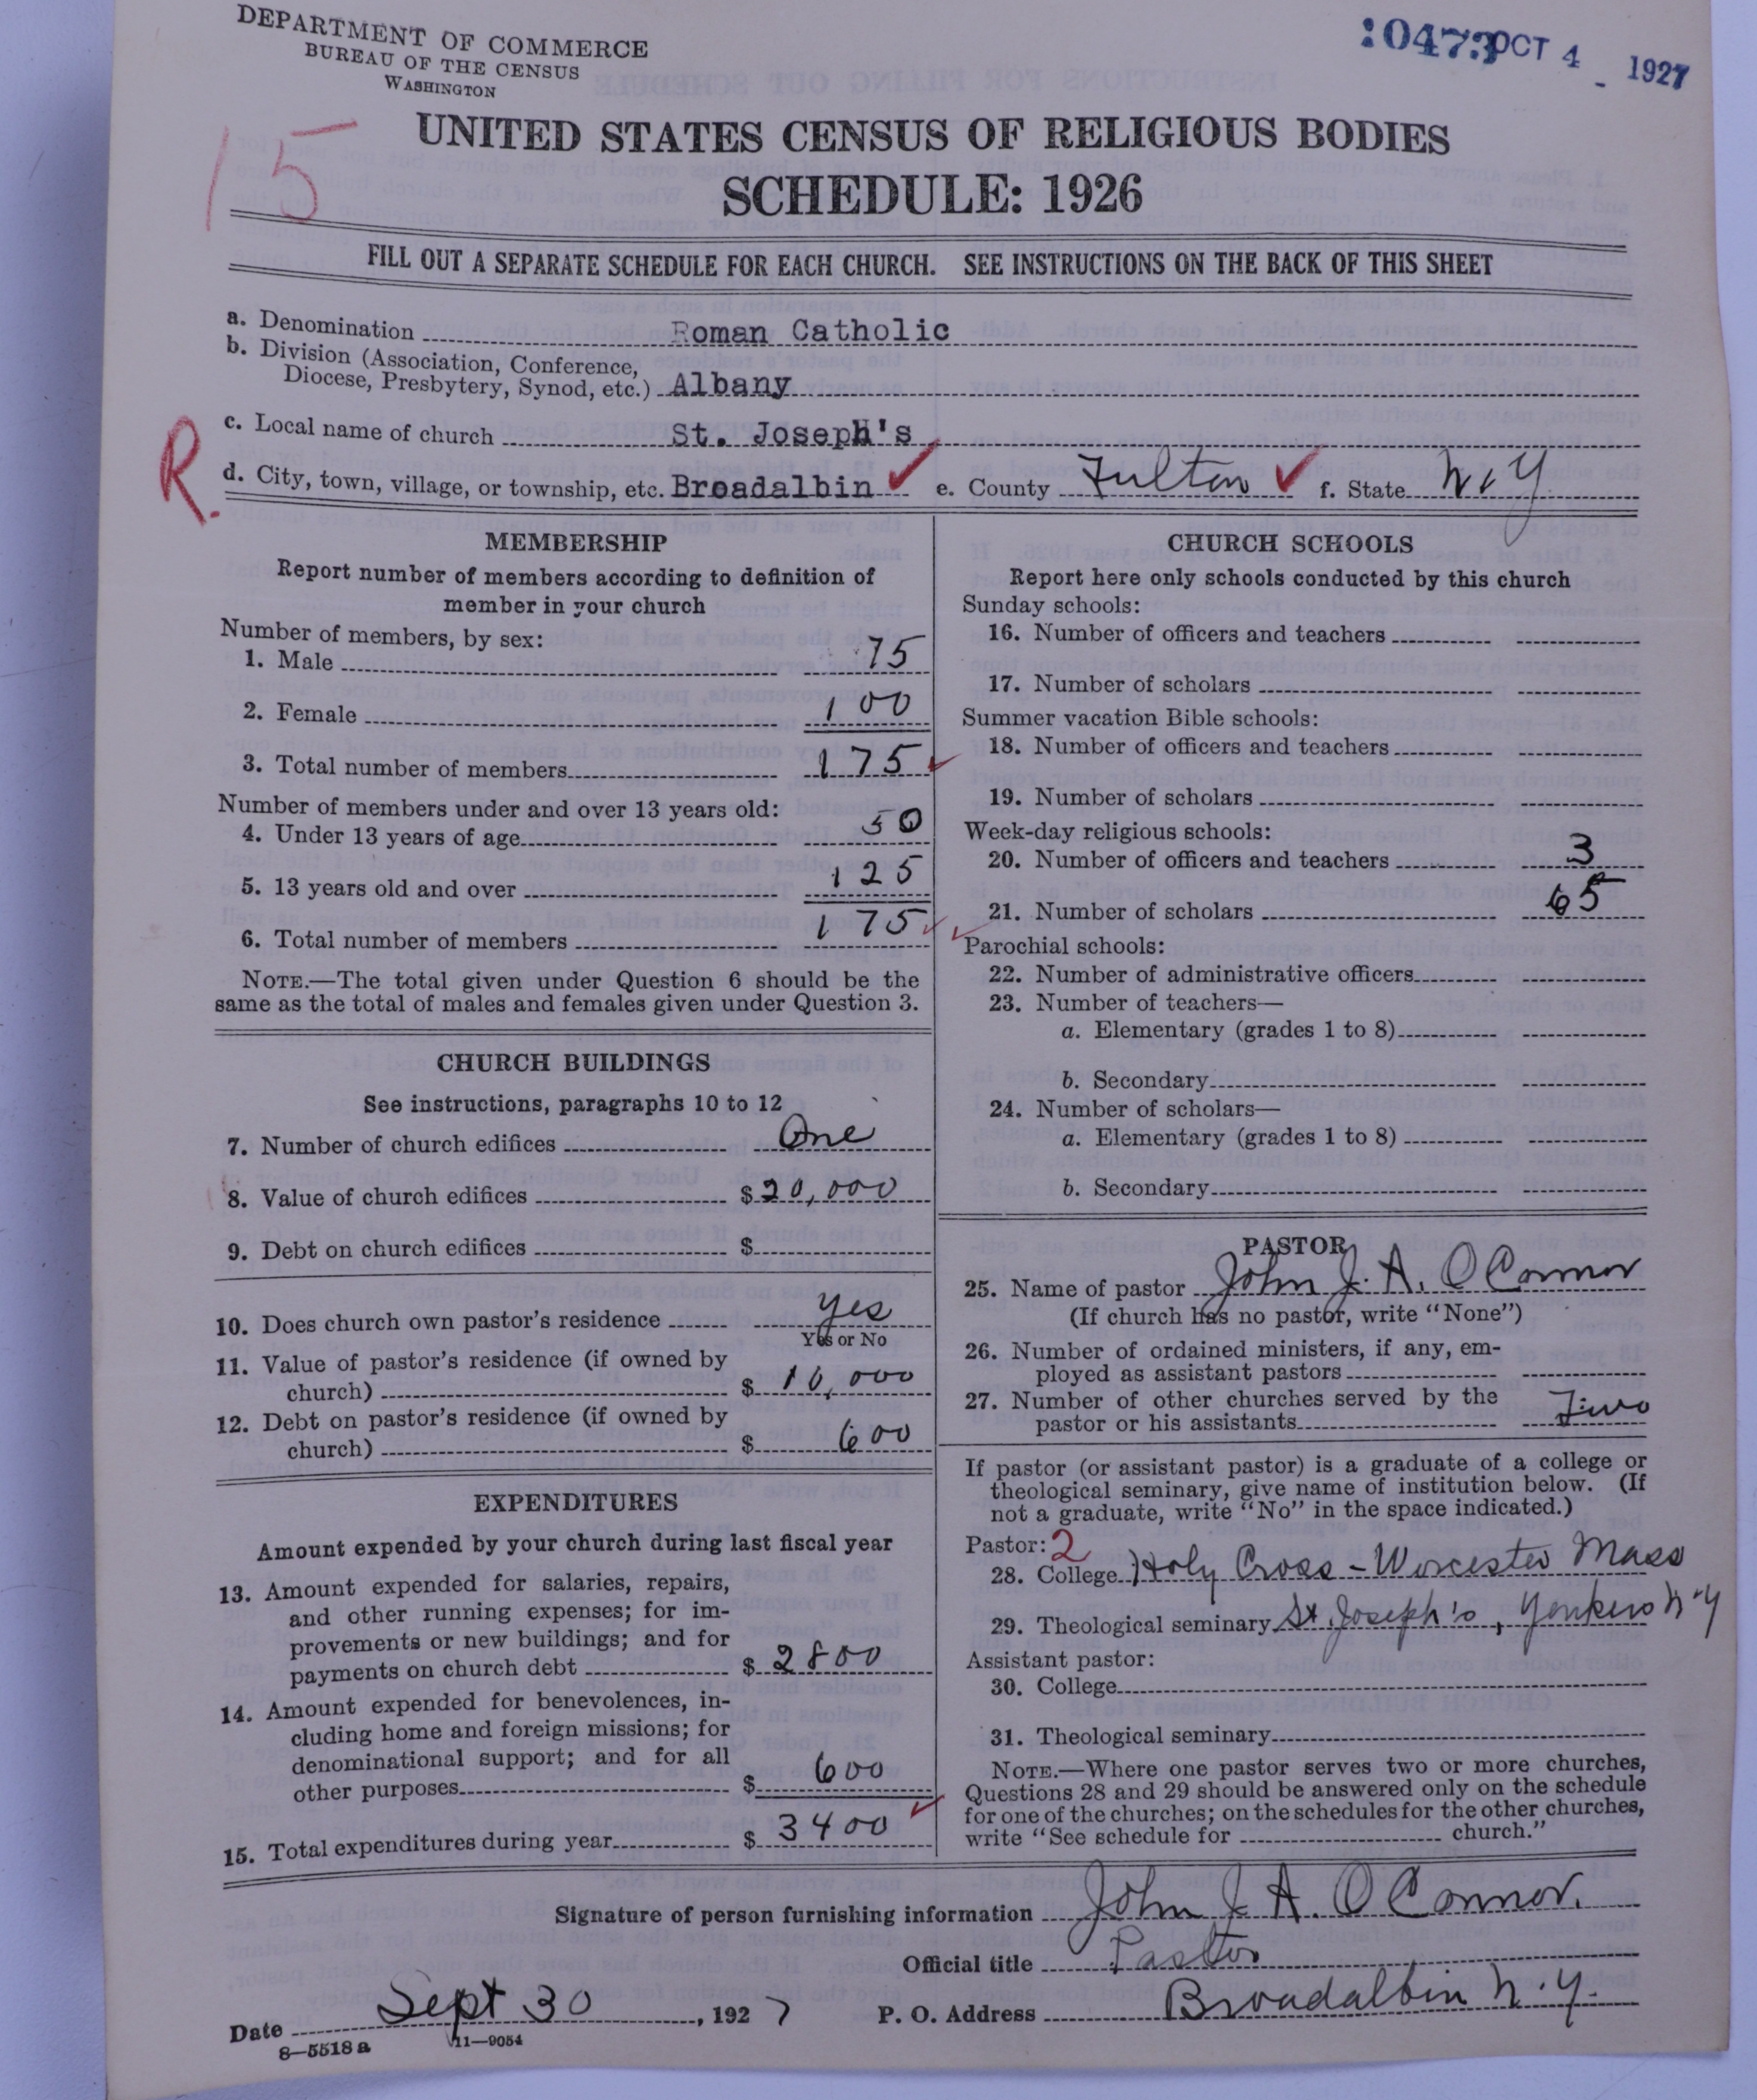 DEPARTMENT OF COMMERCE
BUREAU OF THE CENSUS
WASHINGTON
OCT 4 1927
15
UNITED STATES CENSUS OF RELIGIOUS BODIES
SCHEDULE: 1926
FILL OUT A SEPARATE SCHEDULE FOR EACH CHURCH. SEE INSTRUCTIONS ON THE BACK OF THIS SHEET
a. Denomination Roman Catholic
b. Division (Association, Conference,
Diocese, Presbytery, Synod, etc.) Albany
c. Local name of church St. Joseph's
R.
d. City, town, village, or township, etc. Broadalbin e. County Fulton f. State N.Y.
MEMBERSHIP
Report number of members according to definition of
member in your church
Number of members, by sex:
1. Male 75
2. Female 100
3. Total number of members 175
Number of members under and over 13 years old:
4. Under 13 years of age 50
5. 13 years old and over 125
6. Total number of members 175
NOTE.—The total given under Question 6 should be the
same as the total of males and females given under Question 3.
CHURCH BUILDINGS
See instructions, paragraphs 10 to 12
7. Number of church edifices One
8. Value of church edifices $20,000
9. Debt on church edifices $
10. Does church own pastor's residence Yes
Yes or No
11. Value of pastor's residence (if owned by
church) $10,000
12. Debt on pastor's residence (if owned by
church) $600
EXPENDITURES
Amount expended by your church during last fiscal year
13. Amount expended for salaries, repairs,
and other running expenses; for im-
provements or new buildings; and for
payments on church debt $2800
14. Amount expended for benevolences, in-
cluding home and foreign missions; for
denominational support; and for all
other purposes $600
15. Total expenditures during year $3400
CHURCH SCHOOLS
Report here only schools conducted by this church
Sunday schools:
16. Number of officers and teachers
17. Number of scholars
Summer vacation Bible schools:
18. Number of officers and teachers
19. Number of scholars
Week-day religious schools:
20. Number of officers and teachers 3
21. Number of scholars 65
Parochial schools:
22. Number of administrative officers
23. Number of teachers—
a. Elementary (grades 1 to 8)
b. Secondary
24. Number of scholars—
a. Elementary (grades 1 to 8)
b. Secondary
PASTOR
25. Name of pastor John J. A. O'Connor
(If church has no pastor, write "None")
26. Number of ordained ministers, if any, em-
ployed as assistant pastors
27. Number of other churches served by the
pastor or his assistants Two
If pastor (or assistant pastor) is a graduate of a college or
theological seminary, give name of institution below. (If
not a graduate, write "No" in the space indicated.)
Pastor: 2
28. College Holy Cross - Worcester Mass
29. Theological seminary St. Joseph's, Yonkers N.Y
Assistant pastor:
30. College
31. Theological seminary
NOTE.—Where one pastor serves two or more churches,
Questions 28 and 29 should be answered only on the schedule
for one of the churches; on the schedules for the other churches,
write "See schedule for church."
Signature of person furnishing information John J A. O Connor.
Official title Pastor
Date Sept 30, 1927 P. O. Address Broadalbin N.Y.
8—5518 a 11—9054